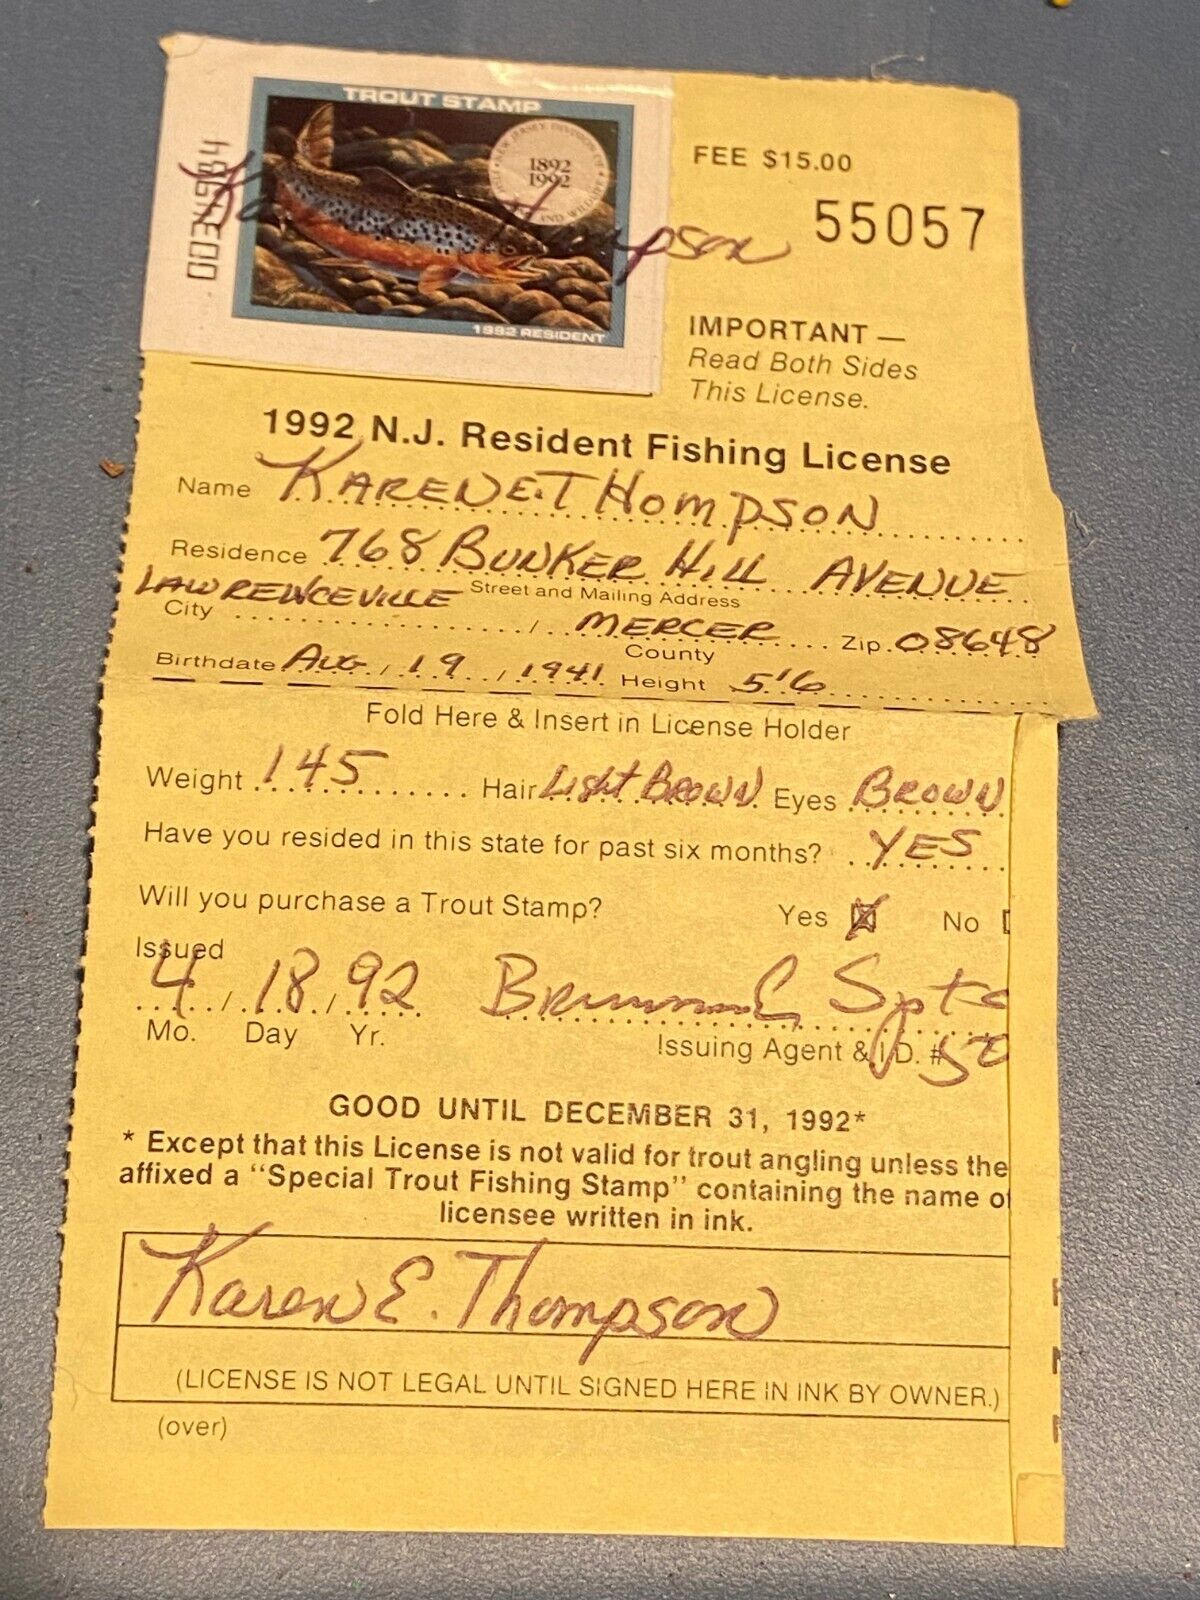 TROUT STAMP
NEW JERSEY DIVISION OF
1892
1992
AND WILDLIFE
0034984
Karen E. Thompson
1992 RESIDENT
FEE $15.00
55057
IMPORTANT —
Read Both Sides
This License.
1992 N.J. Resident Fishing License
Name KAREN E. THOMPSON
Residence 768 BUNKER HILL AVENUE
Street and Mailing Address
LAWRENCEVILLE / MERCER Zip 08648
City County
Birthdate AUG / 19 / 1941 Height 5'6
Fold Here & Insert in License Holder
Weight 145 Hair Light BROWN Eyes BROWN
Have you resided in this state for past six months? YES
Will you purchase a Trout Stamp? Yes No
Issued
4 / 18 / 92 Spts
Mo. Day Yr. Issuing Agent & I.D. # 50
GOOD UNTIL DECEMBER 31, 1992*
* Except that this License is not valid for trout angling unless the
affixed a "Special Trout Fishing Stamp" containing the name of
licensee written in ink.
Karen E. Thompson
(LICENSE IS NOT LEGAL UNTIL SIGNED HERE IN INK BY OWNER.)
(over)